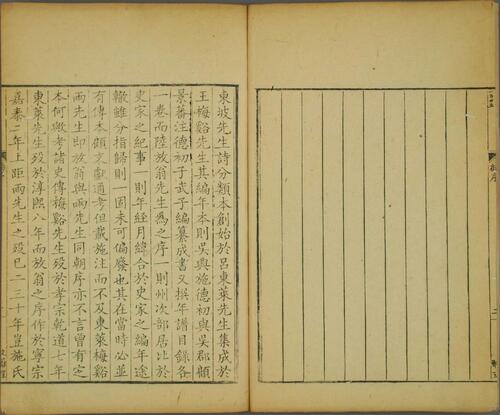 東坡先生詩分類本創始於呂東萊先生集成於
王梅谿先生其編年本則吳興施德初與吳郡顧
景蕃注德初子武子編纂成書又撰年譜目錄各
一卷而陸放翁先生爲之序一則州次部居比於
史家之紀事一則年經月緯合於史家之編年途
轍雖分指歸則一固未可偏廢也其在當時必並
有傳本顧文獻通考但載施注而不及東萊梅谿
兩先生即放翁與兩先生同朝序亦不言曾有定
本何歟考諸史傳梅谿先生歿於孝宗乾道七年
東萊先生歿於淳熙八年而放翁之序作於寧宗
嘉泰二年上距兩先生之歿已二三十年豈施氏
序
二